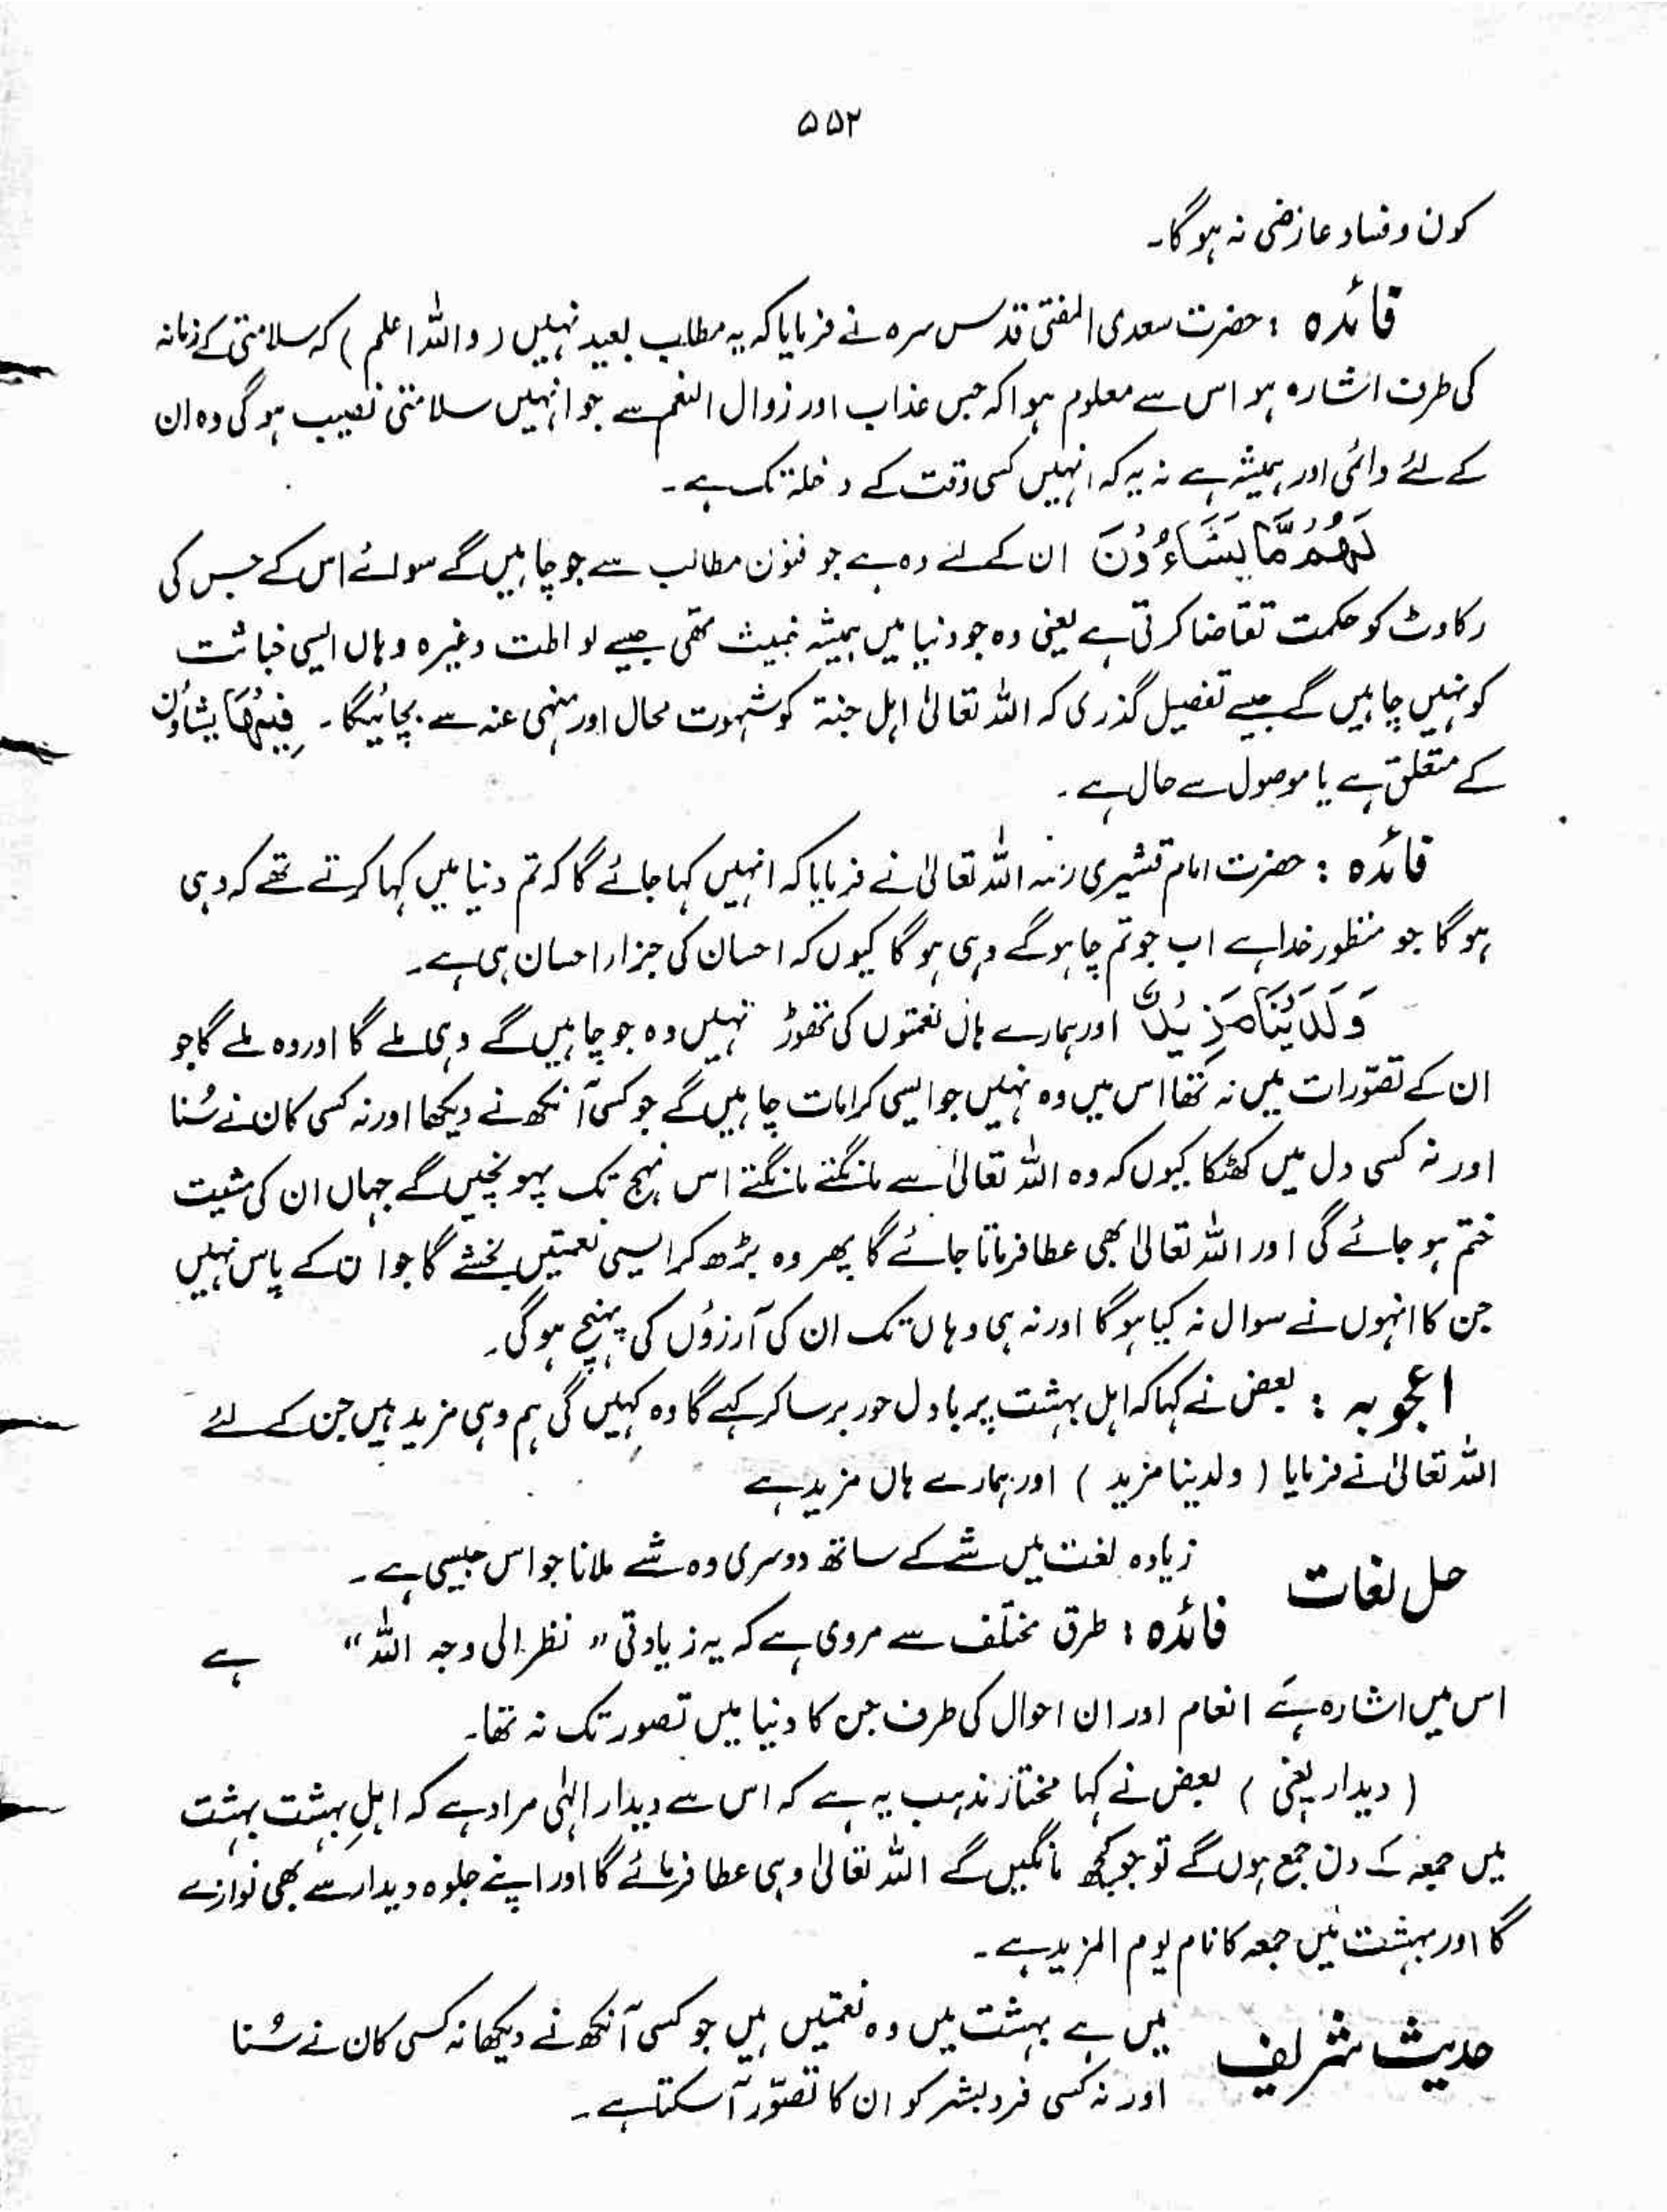 ۵۵۲
کون و فساد عارضی نہ ہو گا۔
فائدہ : حضرت سعدی المفتی قدس سرہ نے فرمایا کہ یہ مطالب بعید نہیں ( واللہ اعلم ) کہ سلامتی کے زمانہ
کی طرف اشارہ ہو اس سے معلوم ہوا کہ جس عذاب اور زوال النعم سے جو انہیں سلامتی نصیب ہو گی وہ ان
کے لئے دائمی اور ہمیشہ ہے نہ یہ کہ انہیں کسی وقت کے دخلہ تک ہے۔
لَهُمْ مَّا يَشَاءُوْنَ ان کے لئے وہ ہے جو فنون مطالب سے جو چاہیں گے سوائے اس کے جس کی
رکاوٹ کو حکمت تقاضا کرتی ہے یعنی وہ جو دنیا میں ہمیشہ خبیث تھی جیسے لواطت وغیرہ وہاں ایسی خباثت
کو نہیں چاہیں گے جیسے تفصیل گذری کہ اللہ تعالیٰ اہل جنۃ کو شہوت محال اور منہی عنہ سے بچائیگا۔ فِيْهَا یشاؤن
کے متعلق ہے یا موصول سے حال ہے۔
فائدہ : حضرت امام قشیری رحمہ اللہ تعالیٰ نے فرمایا کہ انہیں کہا جائے گا کہ تم دنیا میں کہا کرتے تھے کہ وہی
ہو گا جو منظور خدا ہے اب جو تم چاہو گے وہی ہو گا کیوں کہ احسان کی جزاء احسان ہی ہے۔
وَلَدَيْنَا مَزِيْدٌ اور ہمارے ہاں نعمتوں کی تھوڑ نہیں وہ جو چاہیں گے وہی ملے گا اور وہ ملے گا جو
ان کے تصوّرات میں نہ تھا اس میں وہ نہیں جو ایسی کرامات چاہیں گے جو کسی آنکھ نے دیکھا اور نہ کسی کان نے سُنا
اور نہ کسی دل میں کھٹکا کیوں کہ وہ اللہ تعالیٰ سے مانگتے مانگتے اس نہج تک پہونچیں گے جہاں ان کی مشیت
ختم ہو جائے گی اور اللہ تعالیٰ بھی عطا فرماتا جائے گا پھر وہ بڑھ کر ایسی نعمتیں بخشے گا جو ان کے پاس نہیں
جن کا انہوں نے سوال نہ کیا ہو گا اور نہ ہی وہاں تک ان کی آرزوُں کی پہنچ ہو گی۔
اعجوبہ : بعض نے کہا کہ اہل بہشت پر بادل حور برسا کر کہے گا وہ کہیں گی ہم وہی مزید ہیں جن کے لئے
اللہ تعالیٰ نے فرمایا ( ولدینا مزید ) اور ہمارے ہاں مزید ہے
حل لغات زیادہ لغت میں شے کے ساتھ دوسری وہ شے ملانا جو اس جیسی ہے۔
فائدہ : طرق مختلف سے مروی ہے کہ یہ زیادتی " نظر الی وجہ اللہ " ہے
اس میں اشارہ ہے انعام اور ان احوال کی طرف جن کا دنیا میں تصور تک نہ تھا۔
( دیدار یعنی ) بعض نے کہا مختار مذہب یہ ہے کہ اس سے دیدار الٰہی مراد ہے کہ اہلِ بہشت بہشت
میں جمعہ کے دن جمع ہوں گے تو جو کچھ مانگیں گے اللہ تعالیٰ وہی عطا فرمائے گا اور اپنے جلوہ دیدار سے بھی نوازے
گا اور بہشت میں جمعہ کا نام یوم المزید ہے۔
حدیث شریف میں ہے بہشت میں وہ نعمتیں ہیں جو کسی آنکھ نے دیکھا نہ کسی کان نے سُنا
اور نہ کسی فرد بشر کو ان کا تصوّر آ سکتا ہے۔